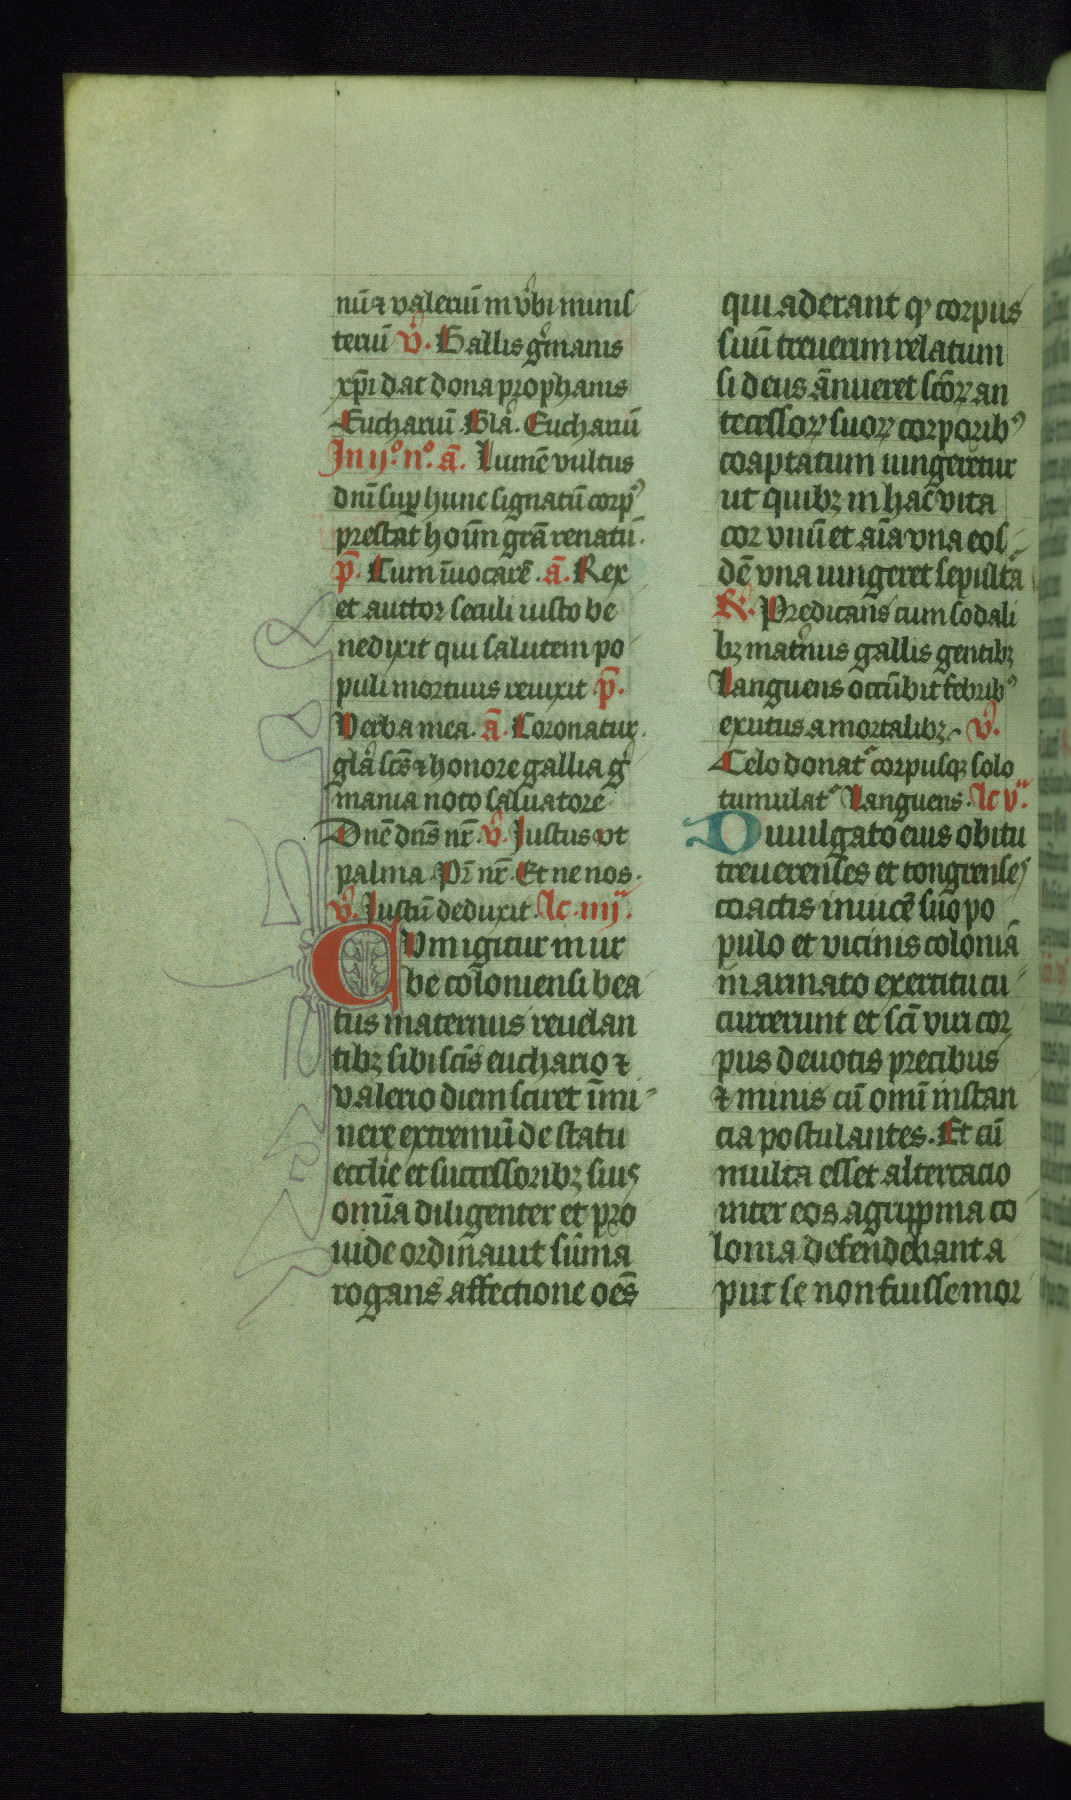 nū ⁊ valeriū in v̾bi minis
teriū v̾. Gallis g̾manis
xp̄i dat dona prophanis
Euchariū. Gl̄a. Euchariū
In ijº. nº. ā. Lumē vultus
dn̄i sup hunc signatū corpꝰ
prestat hoīm grā renatū.
p̄. Cum īuocarē. ā. Rex
et auttor seculi iusto be
nedixit qui salutem po
puli mortuus reuixit p̄.
Verba mea. ā. Coronatur
glā scs̄ ⁊ honore gallia g̾
mania noto saluatore
Dnē dn̄s nr̄. v̾. Justus vt
palma Pr̄ nr̄. Et ne nos.
v̾. Justū deduxit. Lc. iiij.
Cvm igitur in ur
be coloniensi bea
tus maternus reuelan
tibꝫ sibi scīs euchario ⁊
valerio diem sciret īmi
nere extremū de statu
ecclie et successoribꝫ suis
omīa diligenter et pro
uide ordinauit sūma
rogans affectione oēs
qui aderant qꝫ corpus
suū treuerim relatum
si deus ānueret scōꝝ an
tecessoꝝ suoꝝ corporibꝰ
coaptatum iungeretur
ut quibꝫ in hac vita
cor vnū et aīa vna eos
dē vna iungeret sepulta
℟. Predicans cum sodali
bꝫ mat̾nus gallis gentibꝫ
Languens occūbit febribꝰ
exutus a mortalibꝫ. v̾.
Celo donat̾ corpusqꝫ solo
tumulat̾ Languens. Lc v.
Diuulgato eius obitu
treuerenses et tongrenses
coactis inuicē suo po
pulo et vicinis coloniā
in armato exercitu cū
currerunt et scī viri cor
pus deuotis precibus
⁊ minis cū omī instan
cia postulantes. Et cū
multa esset altercacio
inter eos agrippina co
lonia defendebant a
put se non fuisse mor